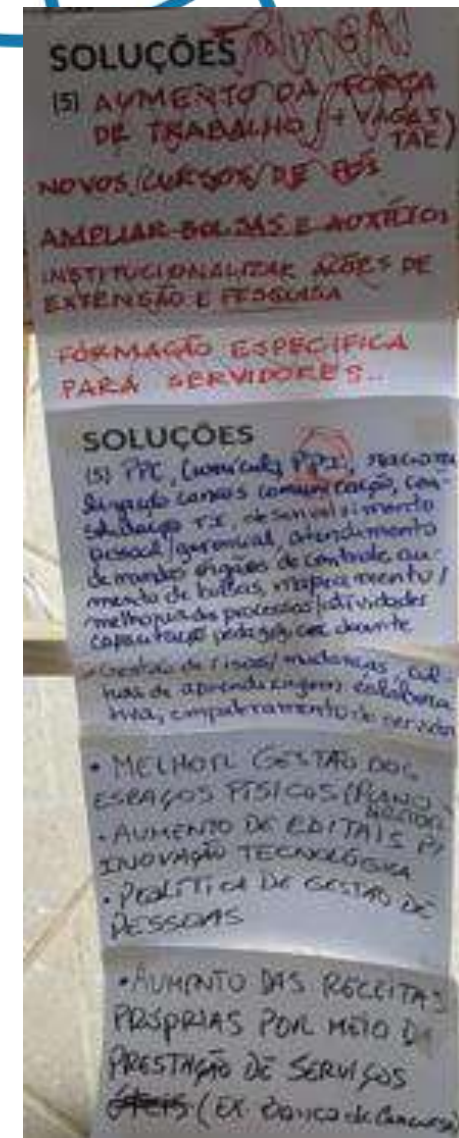 SOLUÇÕES
(5) AUMENTO DA FORÇA
DE TRABALHO (+ VAGAS
TAE)
NOVOS CURSOS DE PÓS
AMPLIAR BOLSAS E AUXÍLIOS
INSTITUCIONALIZAR AÇÕES DE
EXTENSÃO E PESQUISA
FORMAÇÃO ESPECÍFICA
PARA SERVIDORES...
SOLUÇÕES
(5) PPC, Currículo, PPI,
canais comunicação, con-
solidação TI, desenvolvimento
pessoal/gerencial, atendimento
demandas órgãos de controle, au-
mento de bolsas, mapeamento/
melhoria dos processos/atividades
capacitação pedagógica docente
Gestão de riscos/mudanças, cul-
tura de aprendizagem colabora-
tiva, empoderamento do servidor
• MELHOR GESTÃO DOS
ESPAÇOS FÍSICOS (PLANO
• AUMENTO DE EDITAIS P/
INOVAÇÃO TECNOLÓGICA
• POLÍTICA DE GESTÃO DE
PESSOAS
• AUMENTO DAS RECEITAS
PRÓPRIAS POR MEIO DA
PRESTAÇÃO DE SERVIÇOS
(EX. banca de Concurso)